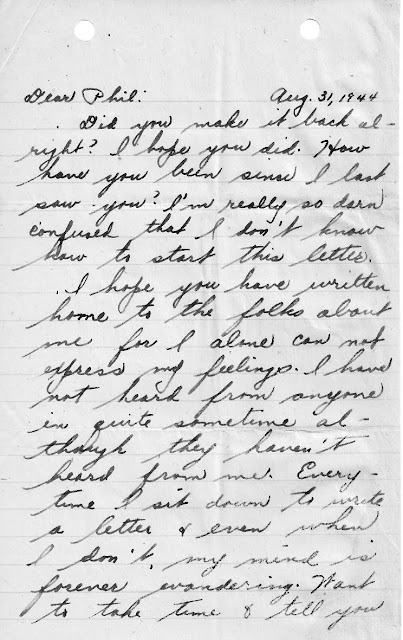 Dear Phil: Aug. 31, 1944
. Did you make it back al-
right? I hope you did. How
have you been sinse I last
saw you? I'm really so darn
confused that I don't know
how to start this letter.
. I hope you have written
home to the folks about
me for I alone can not
express my feelings. I have
not heard from anyone
in quite sometime al-
though they haven't
heard from me. Every-
time I sit down to write
a letter & even when
I don't, my mind is
forever wandering. Want
to take time & tell you